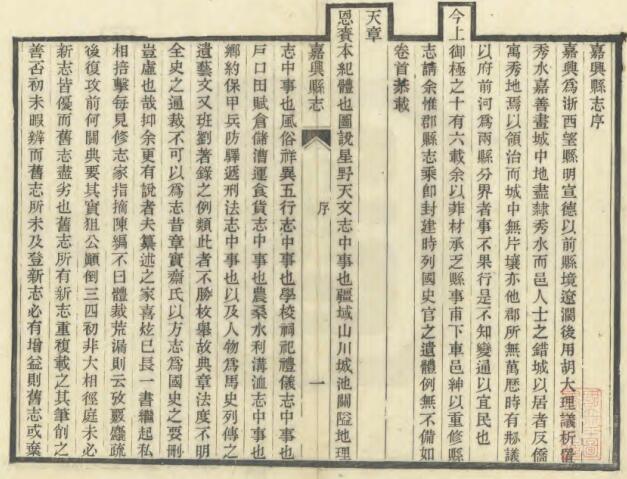 嘉興縣志序
嘉興爲浙西望縣明宣德以前縣境遼濶後用胡大理議析置
秀水嘉善畫城中地盡隸秀水而邑人士之錯城以居者反僑
寓秀地焉以領治而城中無片壤亦他郡所無萬歷時有邢議
以府前河爲兩縣分界者事不果行是不知變通以宜民也
今上御極之十有六載余以菲材承乏縣事甫下車邑紳以重修縣
志請余惟郡縣志乘卽封建時列國史官之遺體例無不備如
卷首恭載
天章
恩賚本紀體也圖說星野天文志中事也疆域山川城池關隘地理
嘉興縣志
序
一
志中事也風俗祥異五行志中事也學校祠祀禮儀志中事也
戶口田賦倉儲漕運食貨志中事也農桑水利溝洫志中事也
鄉約保甲兵防驛遞刑法志中事也以及人物爲馬史列傳之
遺藝文又班劉著錄之例類此者不勝枚舉故典章法度不明
全史之通裁不可以爲志昔章實齋氏以方志爲國史之要刪
豈虛也哉抑余更有說者夫纂述之家喜炫已長一書繼起私
相掊擊每見修志家指摘陳編不曰體裁荒漏則云攷覈麤疏
後復攻前何關典要其實狙公顚倒三四初非大相徑庭未必
新志皆優而舊志盡劣也舊志所有新志重複載之其筆削之
善否初未暇辨而舊志所未及登新志必有增益則舊志或棄